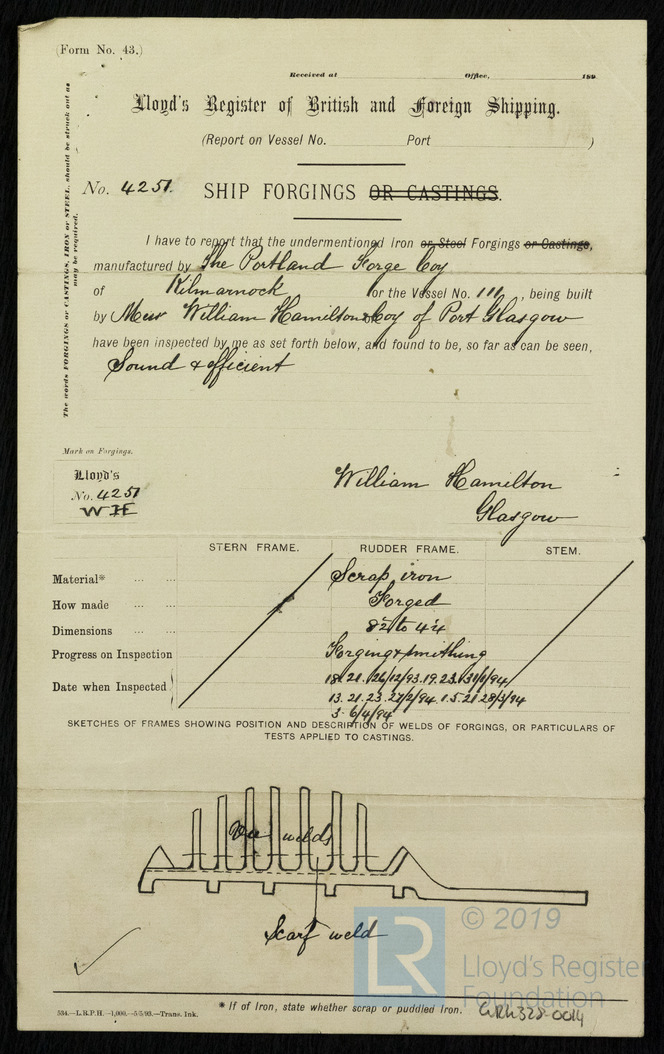 (Form No. 43.)
Received at Office, 189
Lloyd's Register of British and Foreign Shipping.
(Report on Vessel No. Port )
The words FORGINGS or CASTINGS, IRON or STEEL, should be struck out as
may be required.
No. 4251. SHIP FORGINGS OR CASTINGS.
I have to report that the undermentioned Iron or Steel Forgings or Castings,
manufactured by The Portland Forge Coy
of Kilmarnock for the Vessel No. 111, being built
by Messrs William Hamilton & Coy of Port Glasgow
have been inspected by me as set forth below, and found to be, so far as can be seen,
Sound & efficient
Mark on Forgings.
Lloyd's
No. 4251
WH
William Hamilton
Glasgow
STERN FRAME. RUDDER FRAME. STEM.
Material* ... ... Scrap iron
How made ... ... Forged
Dimensions ... ... to
Progress on Inspection Forging & smithing
Date when Inspected 18. 21. 26/12/93. 19. 23. 31/1/94
13. 21. 23. 27/2/94. 1. 5. 21. 28/3/94
3. 6/4/94
SKETCHES OF FRAMES SHOWING POSITION AND DESCRIPTION OF WELDS OF FORGINGS, OR PARTICULARS OF
TESTS APPLIED TO CASTINGS.
Vee welds
Scarf weld
LR
© 2019
Lloyd's Register
Foundation
* If of Iron, state whether scrap or puddled iron.
534.—L.R.P.H.—1,000.—5/5/93.—Trans. Ink.
GRK328-0014